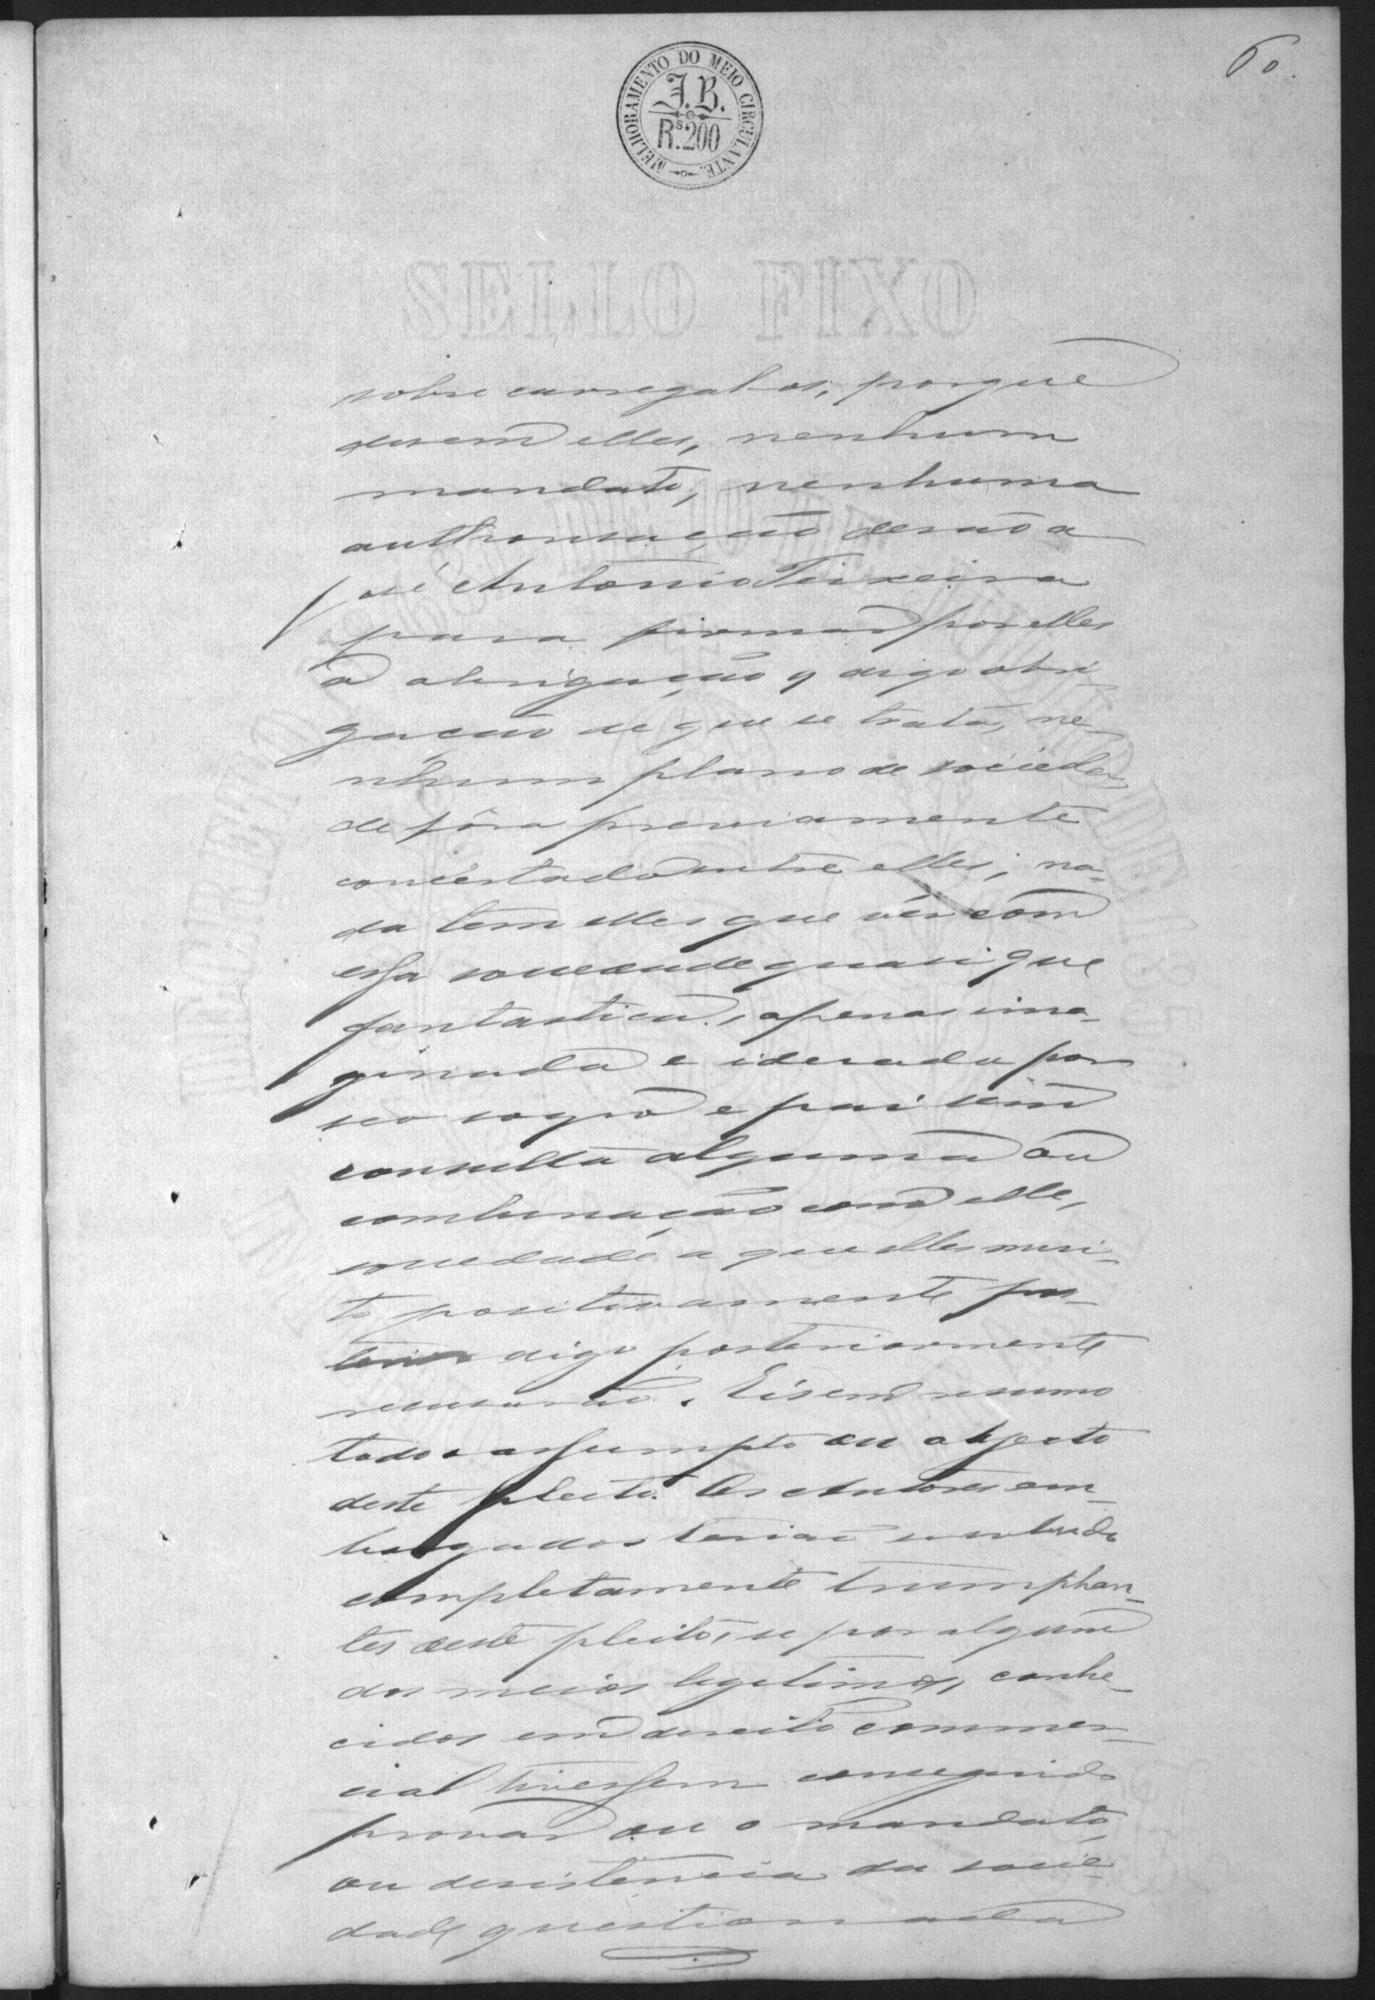 60.
MELHORAMENTO DO MEIO CIRCULANTE.
J.B.
Rs.200
SELLO FIXO
sobre carregal-os, porque
disem elles, nenhum
mandato, nenhuma
authorisação derão a
José Antonio Teixeira
para firmar por elles
a obrigação q digo obri-
gação de que se trata, ne-
nhum plano de socieda-
de fôra previamente
concertado entre elles; na-
da tem elles que vêr com
essa sociedade quasi que
fantastica, apenas ima-
ginada e ideada por
seo sogro e pai sem
consulta alguma ou
combinação com elle,
sociedade a que elles mui-
to positivamente pos-
digo posteriormente
recusarão. Eis em resumo
todo o assumpto ou objecto
deste pleito. Os Autores em-
bargados terião sahido
completamente triumphan-
tes deste pleito, se por algum
dos meios legitimos, conhe-
cidos em direito commer-
cial tivessem conseguido
provar ou o mandato,
ou desistencia da socie-
dade questionada